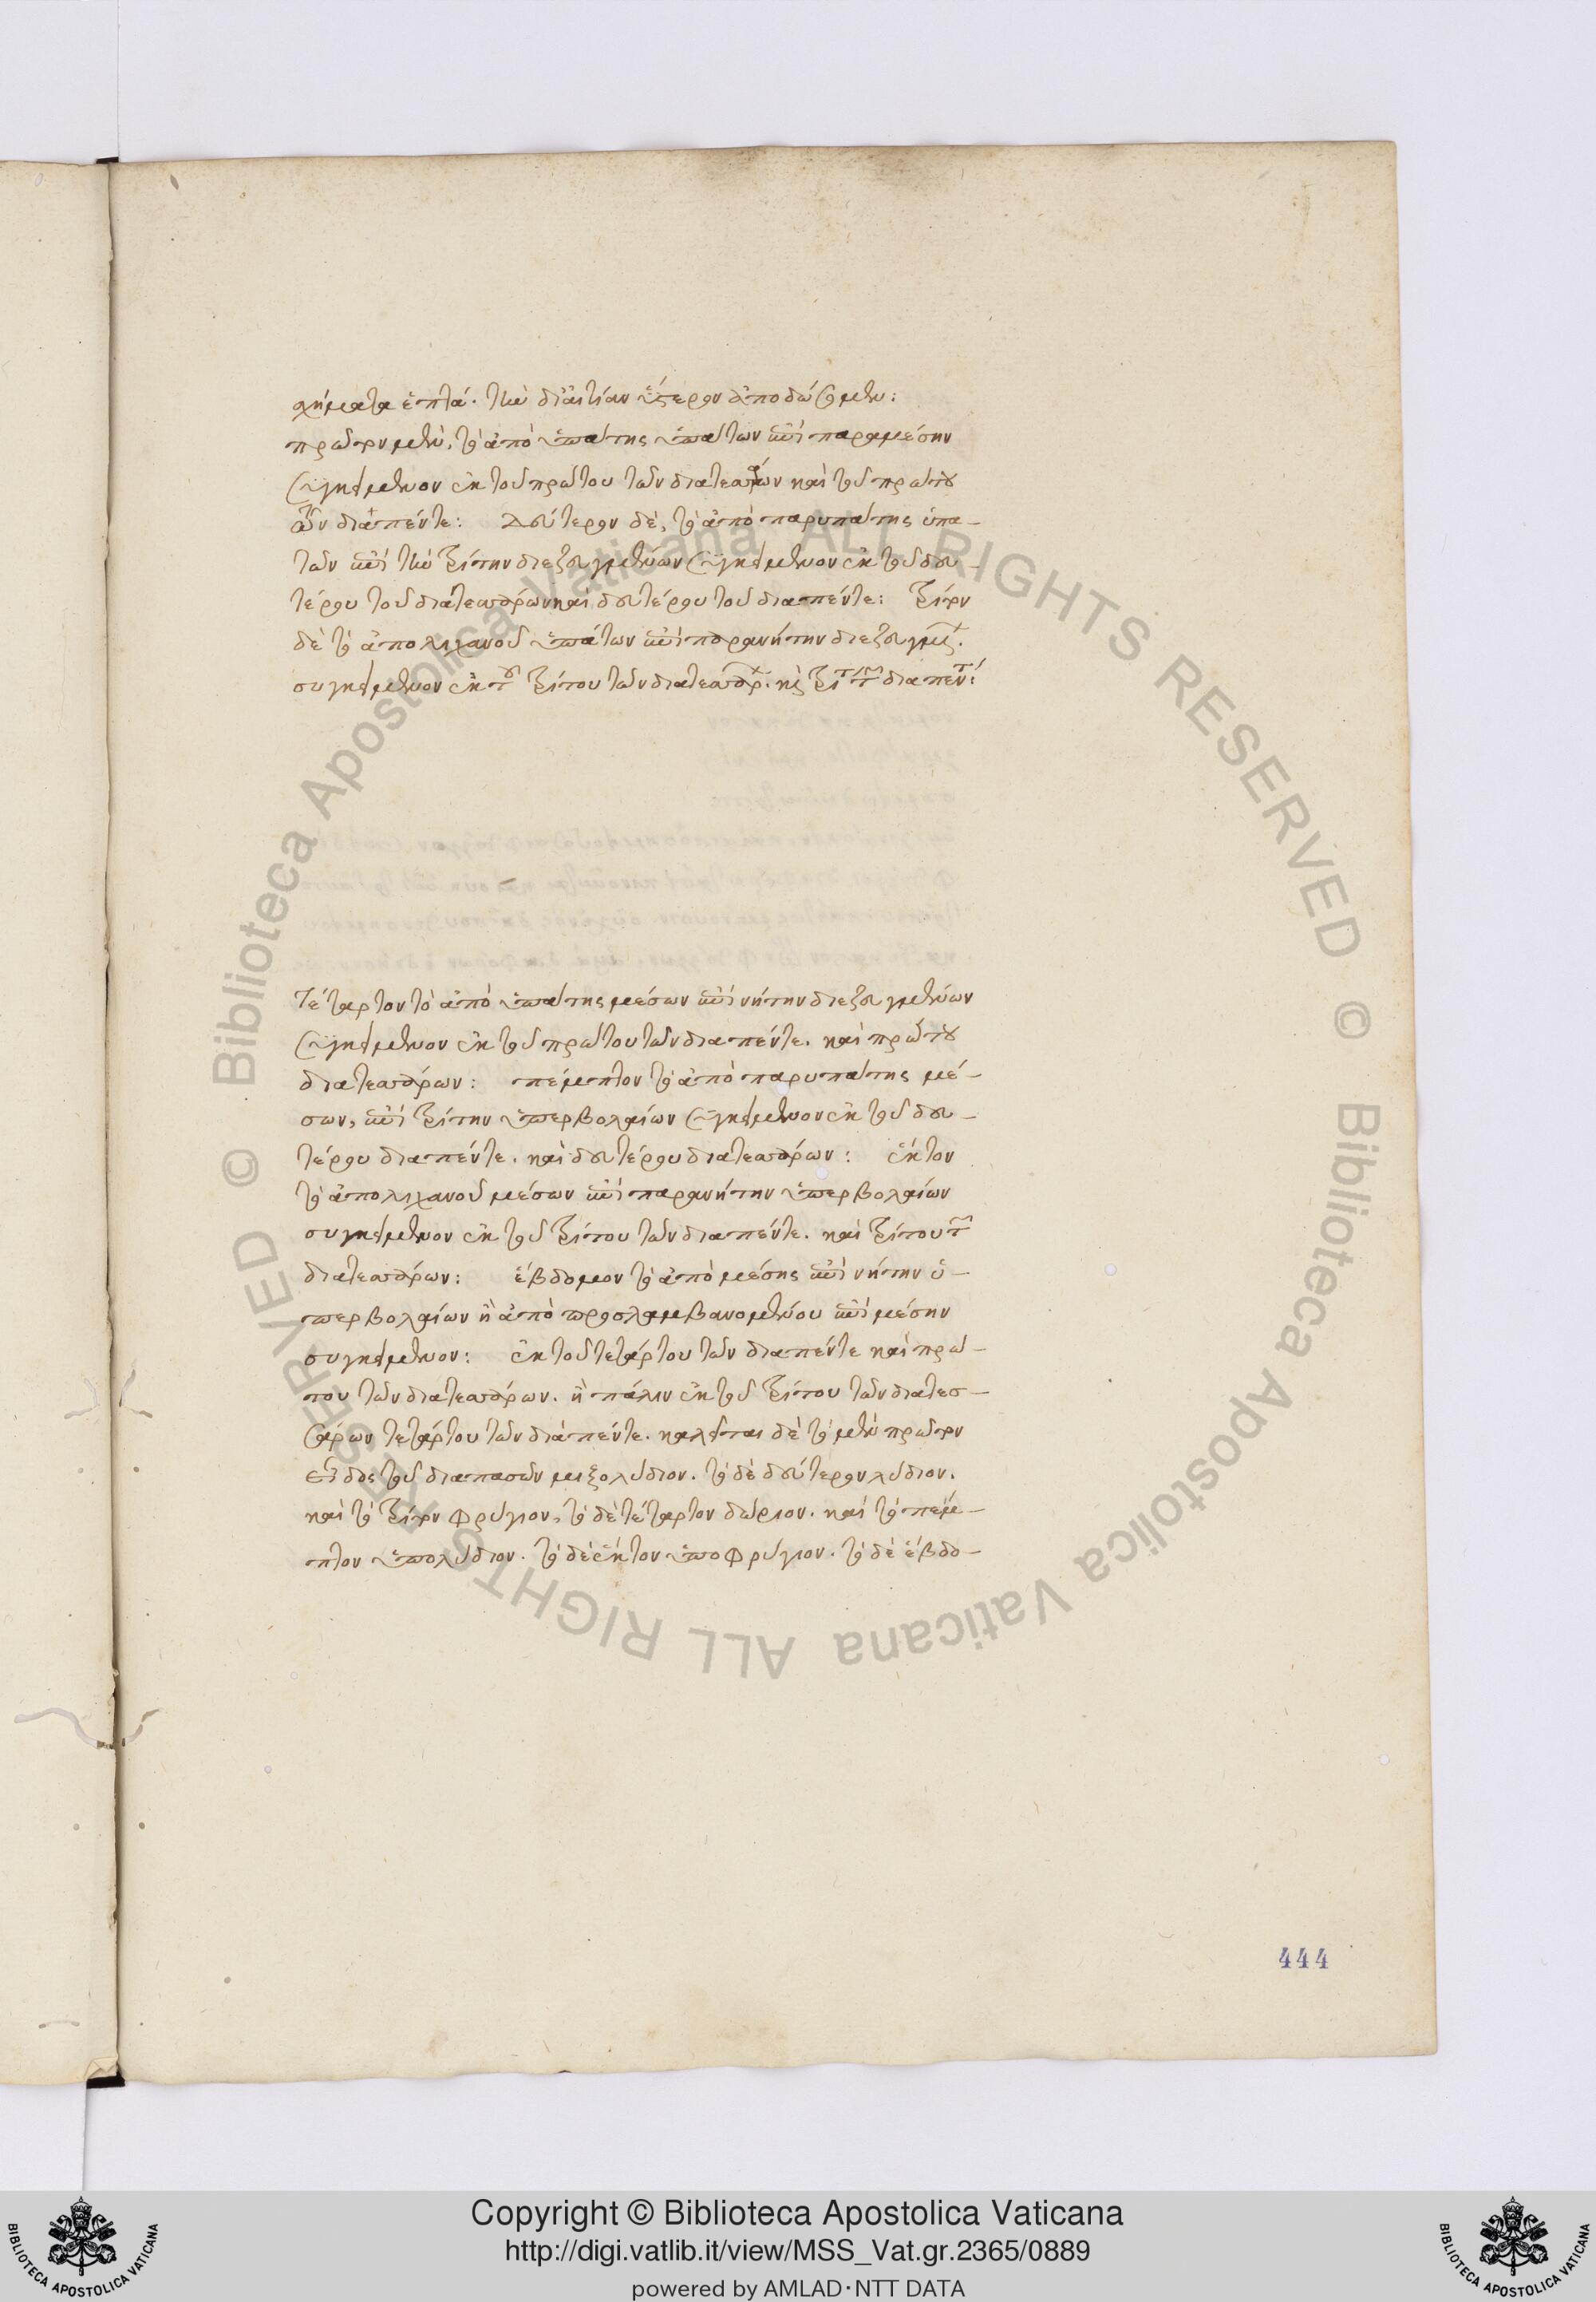 χήματα ἑπτά. τὴν δι' αἰτίαν ὕστερον ἀποδώσομεν:
πρῶτον μὲν, τὸ ἀπὸ ὑπάτης ὑπάτων ἐπὶ παραμέσην
συγκείμενον ἐκ τοῦ πρώτου τῶν διατεσσάρων καὶ τοῦ πρώτου
τῶν διὰ πέντε: Δεύτερον δὲ, τὸ ἀπὸ παρυπάτης ὑπα-
τῶν ἐπὶ τὴν τρίτην διεζευγμένων συγκείμενον ἐκ τοῦ δευ-
τέρου τοῦ διατεσσάρων καὶ δευτέρου τοῦ διαπέντε: τρίτον
δὲ τὸ ἀπὸ λιχανοῦ ὑπάτων ἐπὶ παρανήτην διεζευγμ.
συγκείμενον ἐκ τοῦ τρίτου τῶν διατεσσάρ. καὶ τρίτ τ διαπεντ:
Τέταρτον τὸ ἀπὸ ὑπάτης μέσων ἐπὶ νήτην διεζευγμένων
συγκείμενον ἐκ τοῦ πρώτου τῶν διαπέντε. καὶ πρώτου
διατεσσάρων: πέμπτον τὸ ἀπὸ παρυπάτης μέ-
σων, ἐπὶ τρίτην ὑπερβολαίων συγκείμενον ἐκ τοῦ δευ-
τέρου διαπέντε. καὶ δευτέρου διατεσσάρων: ἕκτον
τὸ ἀπὸ λιχανοῦ μέσων ἐπὶ παρανήτην ὑπερβολαίων
συγκείμενον ἐκ τοῦ τρίτου τῶν διαπέντε. καὶ τρίτου τ
διατεσσάρων: ἕβδομον τὸ ἀπὸ μέσης ἐπὶ νήτην ὑ-
περβολαίων ἢ ἀπὸ προσλαμβανομένου ἐπὶ μέσην
συγκείμενον: ἐκ τοῦ τετάρτου τῶν διαπέντε καὶ πρώ-
του τῶν διατεσσάρων. ἢ πάλιν ἐκ τοῦ τρίτου τῶν διατεσ-
σάρων τετάρτου τῶν διὰ πέντε. καλεῖται δὲ τὸ μὲν πρῶτον
εἶδος τοῦ διαπασῶν μιξολύδιον. τὸ δὲ δεύτερον λύδιον.
καὶ τὸ τρίτον φρύγιον, τὸ δὲ τέταρτον δώριον. καὶ τὸ πέμ-
πτον ὑπολύδιον. τὸ δὲ ἕκτον ὑποφρύγιον. τὸ δὲ ἕβδο-
444
© Biblioteca Apostolica Vaticana ALL RIGHTS RESERVED © Biblioteca Apostolica Vaticana ALL RIGHTS RESERVED
Copyright © Biblioteca Apostolica Vaticana
http://digi.vatlib.it/view/MSS_Vat.gr.2365/0889
powered by AMLAD·NTT DATA
BIBLIOTECA APOSTOLICA VATICANA
BIBLIOTECA APOSTOLICA VATICANA